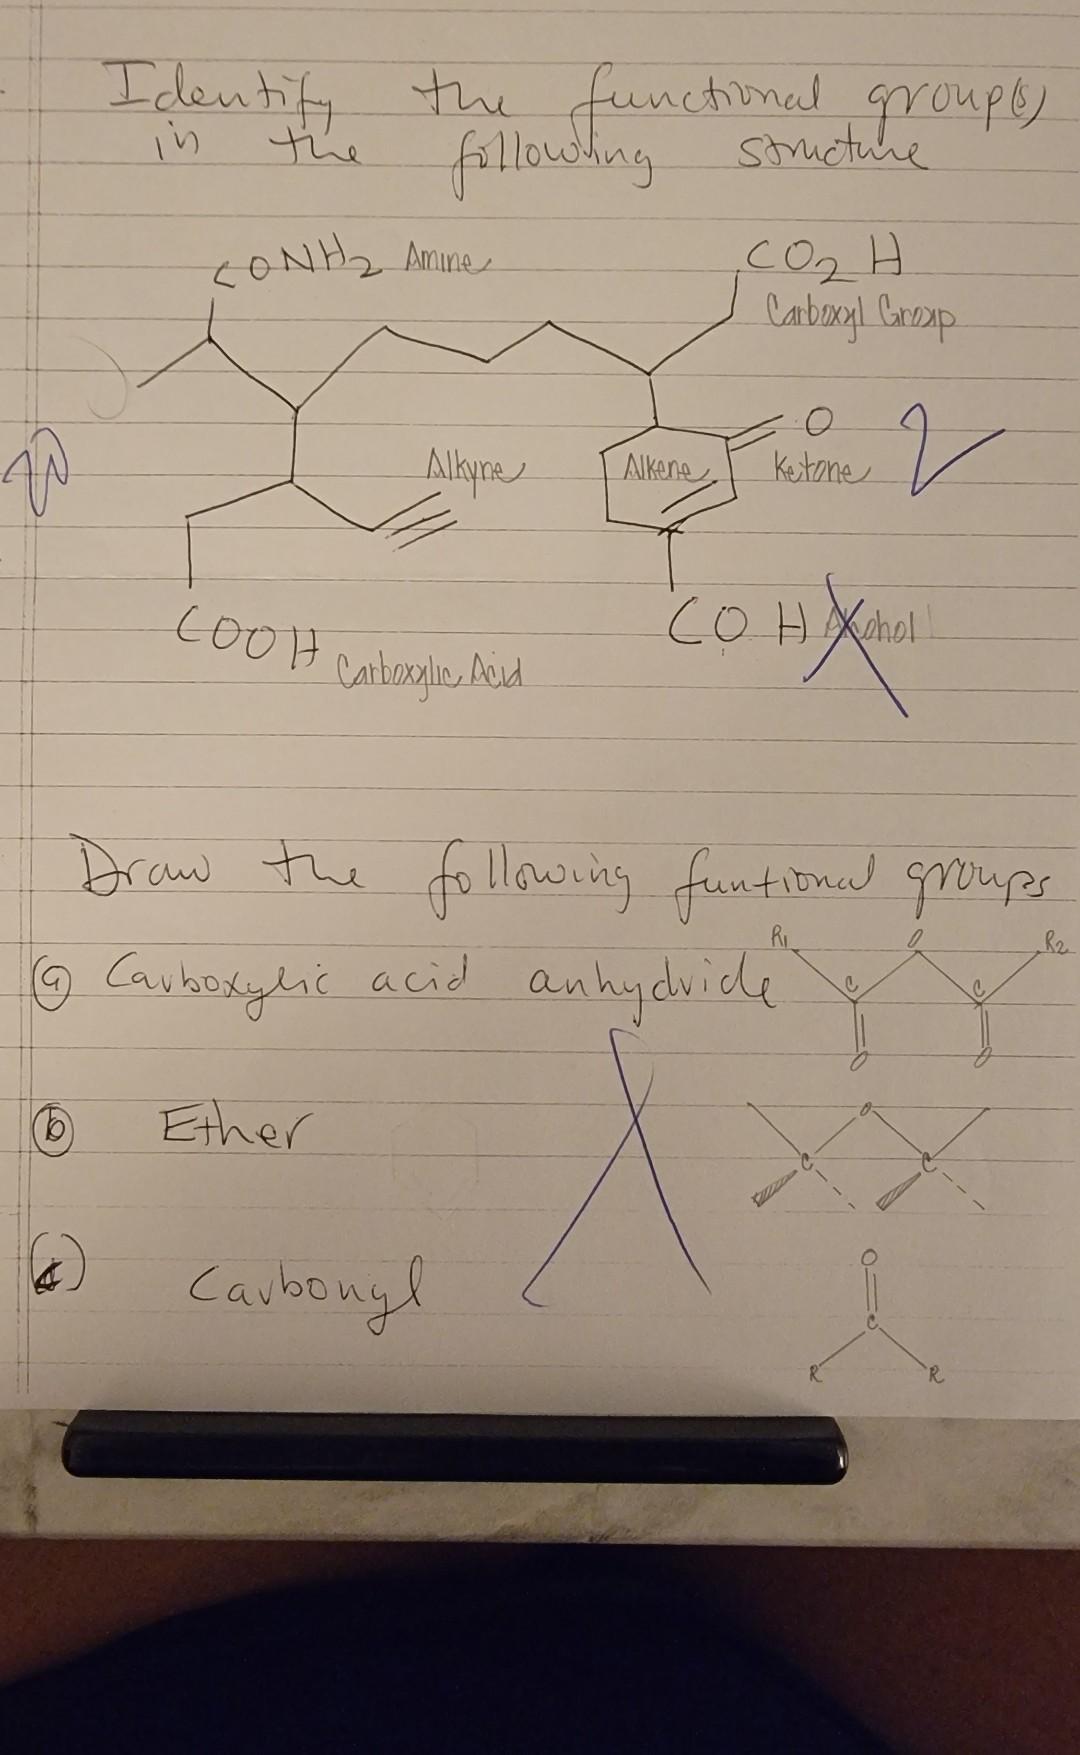 Identify the functional group(s)
in the following structure
CONH2 Amine
CO2H
Carboxyl Group
O
Alkyne Alkene Ketone
COOH Carboxylic Acid
COH Alcohol
Draw the following funtional groups
(a) Carboxylic acid anhydride R1 O R2
C C
O O
(b) Ether O
C C
(c) Carbonyl O
C
R R